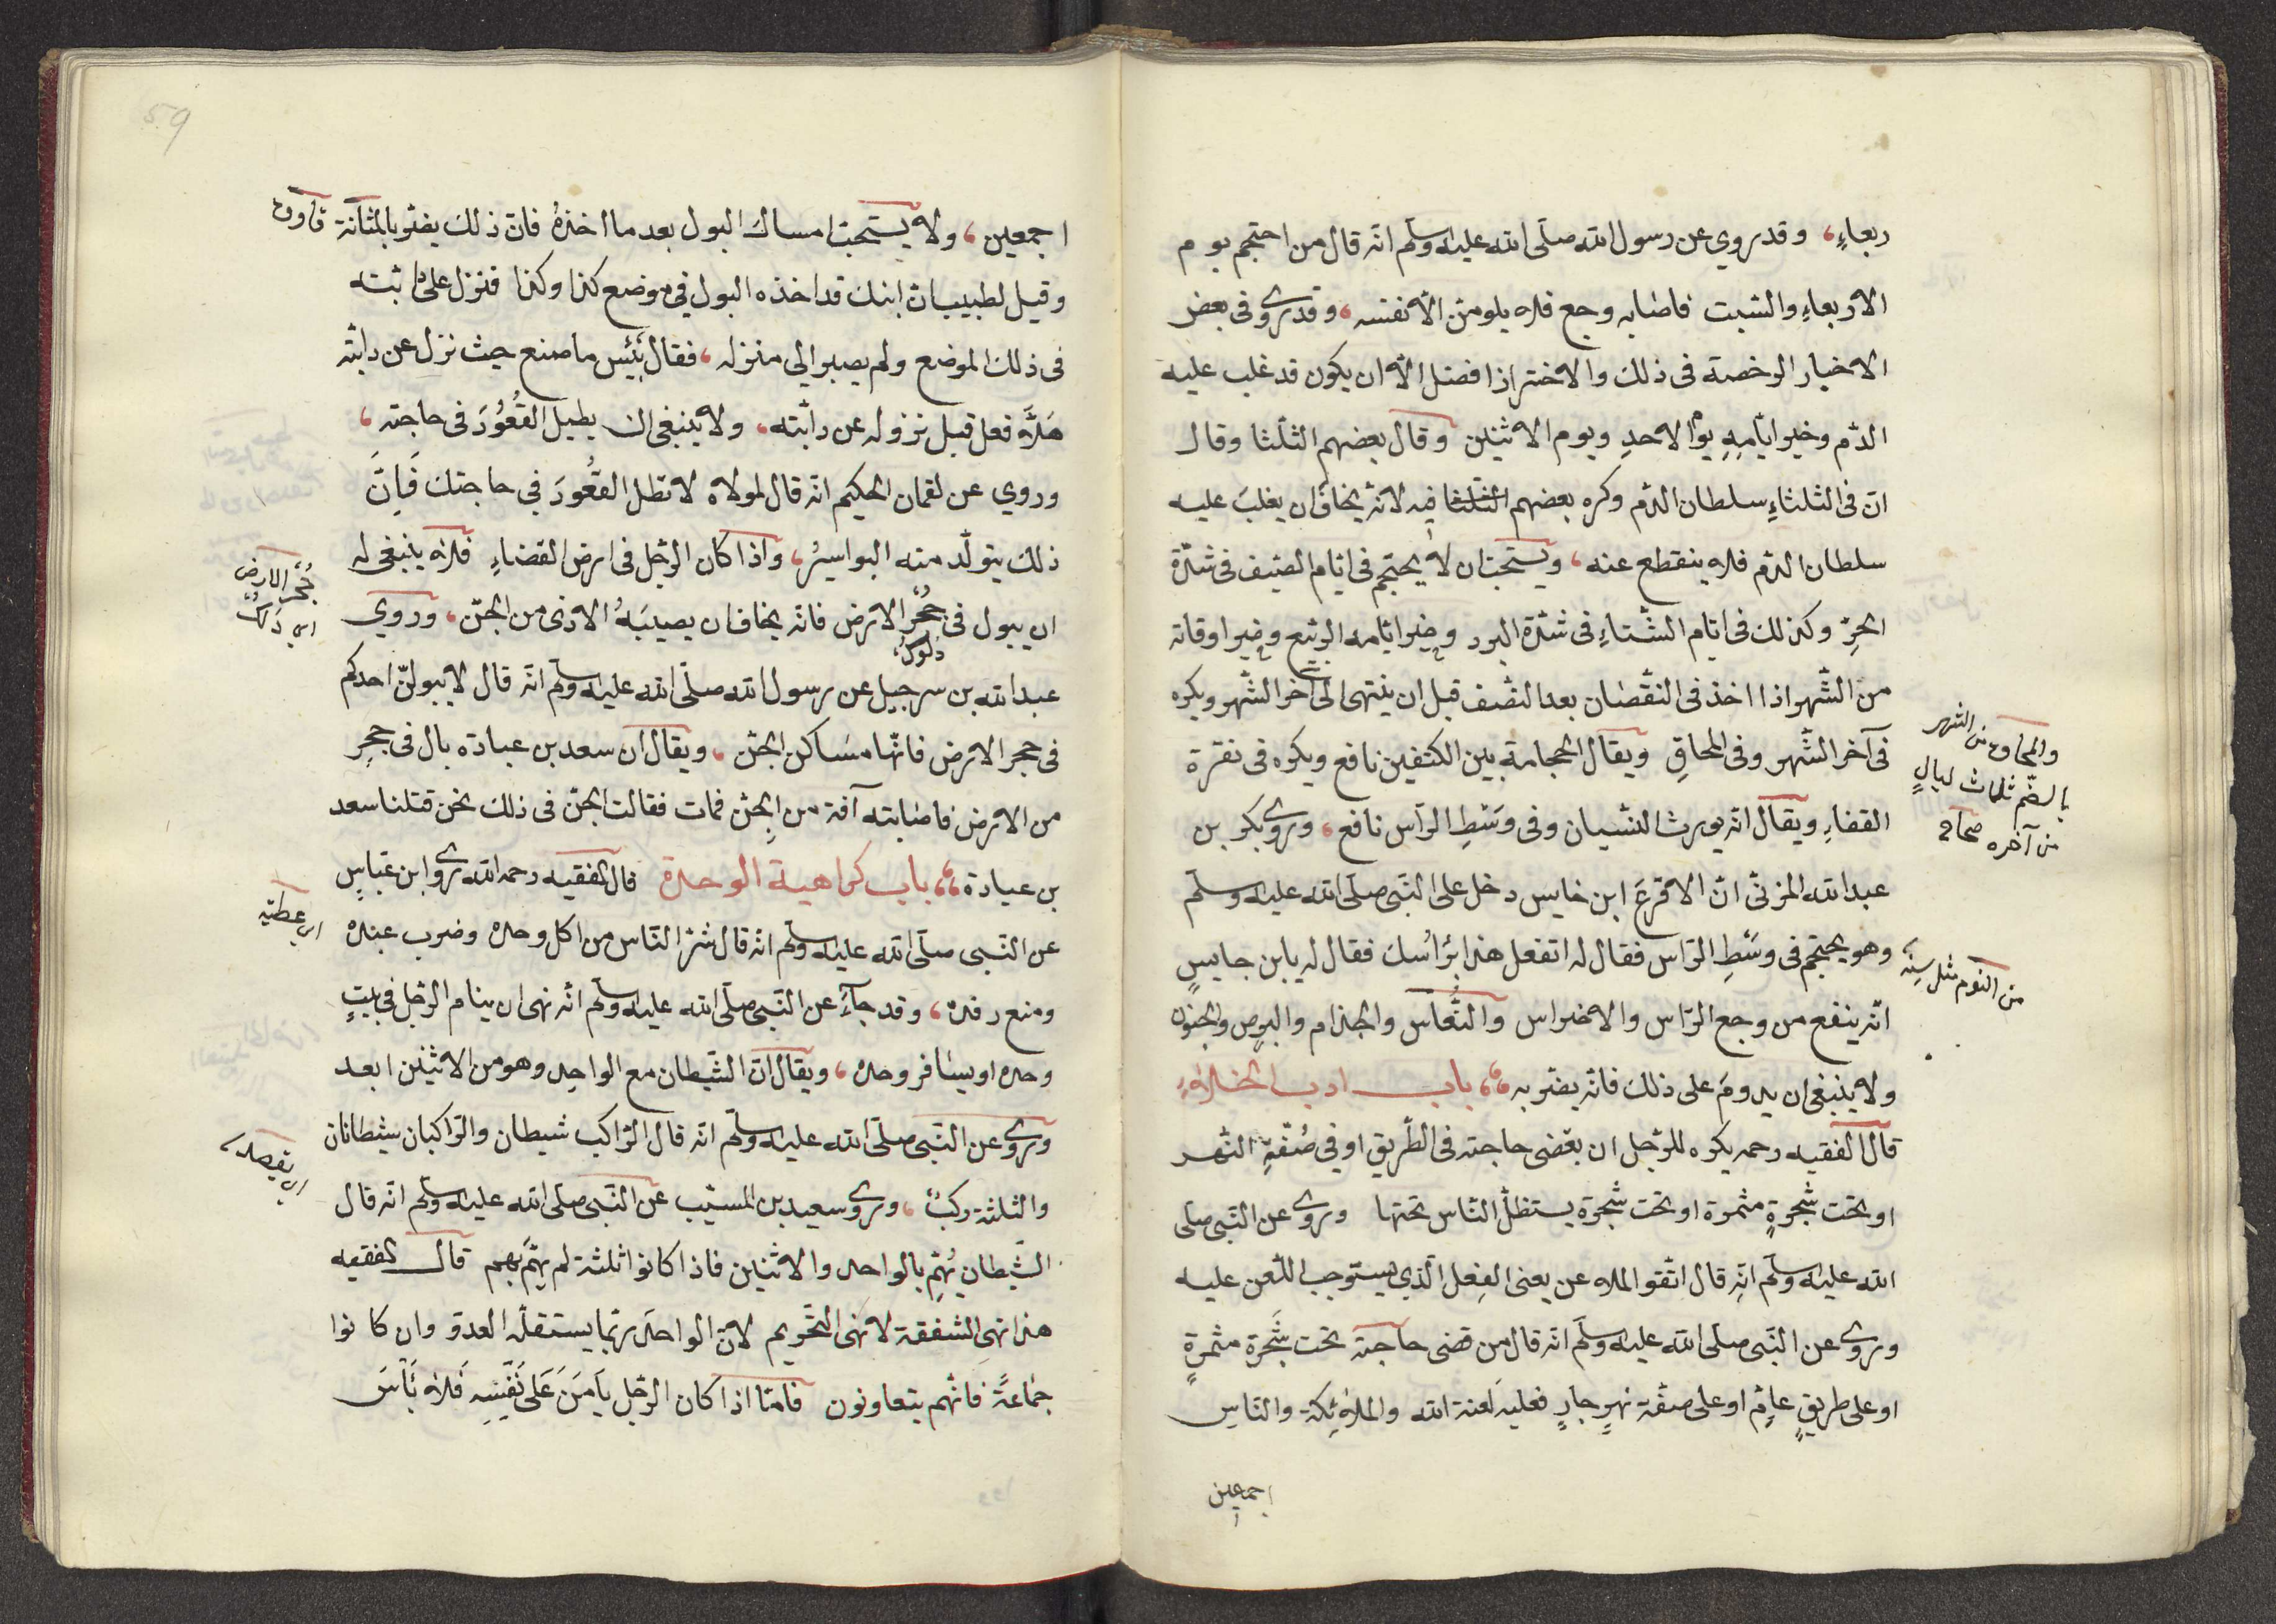 ربعاءٍ، وقد روي عن رسول الله صلّى الله عليه وسلّم انّه قال من احتجم يوم
الاربعاءِ والسّبت فاصابه وجع فلا يلومنّ الّا نفسه، وقد روى فى بعض
الاخبار الرخصة فى ذلك والاحتراز افضل الّا ان يكون قد غلب عليه
الدّم وخير ايّامِهِ يوم الاحدِ ويوم الاثنين وقال بعضهم الثلثا وقال
انّ فى الثلثاءِ سلطان الدّم وكره بعضهم الثلثا فيه لانّه يخاف ان يغلبَ عليه
سلطان الدّم فلا ينقطع عنه، ويستحبّ ان لا يحتجم فى ايّام الصّيف فى شدّة
الحرِّ وكذلك فى ايّام الشّتاءِ فى شدّة البرد وخير ايّامه الرّبيع وخير اوقاته
من الشّهر اذا اخذ فى النقصان بعد النّصف قبل ان ينتهى الى آخر الشّهر ويكره
فى آخر الشّهر وفى المحاقِ ويقال الحجامة بين الكتفين نافع ويكره فى نقرة
القفاءِ ويقال انّه يورث النّسيان وفى وَسَطِ الرّاس نافع، وروى بكر بن
عبد الله المزنىّ انّ الاقرعَ ابن خابس دخل على النّبى صلّى الله عليه وسلّم
وهو يحتجم فى وسَطِ الرّاس فقال له اتفعل هذا برُاسُك فقال له يا ابن حابسٍ
انّه ينفع من وجع الرّاس والاضراس والنُّعاس والجذام والبرص والجنون
ولا ينبغى ان يدومَ على ذلك فانّه يضرّ به، باب ادب الخلاءِ
قال الفقيه رحمه يكره للرّجل ان يقضى حاجته فى الطّريق او في ضفّةِ النّهر
او تحت شجرةٍ مثمرة او تحت شجرة يستظلّ النّاس تحتها وروى عن النّبى صلى
الله عليه وسلّم انّه قال اتّقوا الملاعن يعنى الفِعل الّذي يستوجب اللّعن عليه
وروى عن النّبى صلّى الله عليه وسلّم انّه قال من قضى حاجته تحت شَجَرة مثمرةٍ
او على طريقٍ عامٍّ او على ضفّة نهرٍ جارٍ فعليه لعنة الله والملائكة والنّاسِ
اجمعين
والمحاق من الشهر
بالضّم ثلاث ليالٍ
من آخره صحاح
من النوم مثل سِنة
اجمعين، ولا يستحبّ امساك البول بعد ما اخذهُ فانّ ذلك يضرّ بالمثانة
وقيل لطبيب انّ ابنك قد اخذه البول في موضع كذا وكذا فنزل على دابّته
فى ذلك الموضع ولم يصبر الى منزله، فقال بِئس ما صنع حيث نزل عن دابّته
هَلّا فعل قبل نزوله عن دابّته، ولا ينبغى ان يطيل القُعُودَ فى حاجته،
وروي عن لقمان الحكيم انّه قال لمولاه لا تطل القُعُودَ في حاجتك فَاِنَّ
ذلك يتولّد منه البواسيرُ، واذا كان الرّجل فى ارض القضاءِ فلا ينبغى له
ان يبول فى جُحْرِ الارض فانّه يخاف ان يصيبَهُ الاذى من الجنّ، وروي
عبد الله بن سرجيل عن رسول الله صلّى الله عليه وسلّم انّه قال لا يبولنّ احدكم
فى جحر الارض فانّها مسَاكن الجنّ، ويقال ان سعد بن عبادة بال فى جحرٍ
من الارض فاصابته آفة من الجِنّ فمات فقالت الجنّ فى ذلك نحن قتلنا سعد
بن عبادة، باب كراهية الوحدة قال الفقيه رحمه الله روى ابن عبّاسٍ
عن النّبى صلّى الله عليه وسلّم انّه قال شرّ النّاس من اكل وحده وضرب عبده
ومنع رفده، وقد جآءَ عن النّبى صلّى الله عليه وسلّم انّه نهى ان ينام الرّجل فى بيتٍ
وحده او يسَافر وحده، ويقال انّ الشّيطان مع الواحِد وهو من الاثنين ابعد
وروى عن النّبى صلّى الله عليه وسلّم انّه قال الرّاكب شيطان والرّاكبان شيطانان
والثلثة ركبٌ، وروى سعيد بن المسيّب عن النّبى صلّى الله عليه وسلّم انّه قال
الشّيطان يُهمّ بالواحد والاثنين فاذا كانوا ثلثة لم يهمّ بهم قال الفقيه
هذا نهى الشفقة لا نهى التّحريم لانّ الواحدَ ربّما يستقلّه العدوّ وان كانوا
جمَاعةً فانّهم يتعاونون فامّا اذا كان الرّجل يَامَنَ عَلَى نَفْسِهِ فَلا بَأسَ
جُحر الارض
اى عطيّه
اى يقصد
59